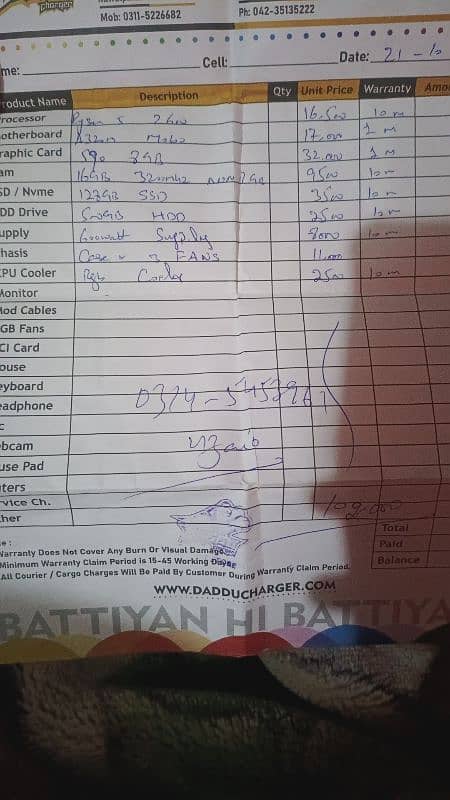 charger
Mob: 0311-5226682 Ph: 042-35135222
me: Cell: Date: 21 - 10
roduct Name Description Qty Unit Price Warranty Amo
rocessor Ryzen 5 2600 16.500 10 m
otherboard A320m Mobo 17.000 1 M
raphic Card 590 8GB 32.000 1 M
am 16GB 3200mhz 9500 10 m
SD / Nvme 128GB SSD 3500 10 m
DD Drive 500GB HDD 2500 10 m
upply 600watt Supply 8000 10 m
hasis Case 3 FANS 11.000
CPU Cooler Rgb Cooler 2500 10 m
Monitor
Mod Cables
GB Fans
CI Card
ouse
eyboard
eadphone
c
bcam
use Pad
ters
rvice Ch.
her 102.000
Total
Paid
Balance
e :
Warranty Does Not Cover Any Burn Or Visual Damage.
Minimum Warranty Claim Period is 15-45 Working Days
All Courier / Cargo Charges Will Be Paid By Customer During Warranty Claim Period.
WWW.DADDUCHARGER.COM
BATTIYAN HI BATTIYA